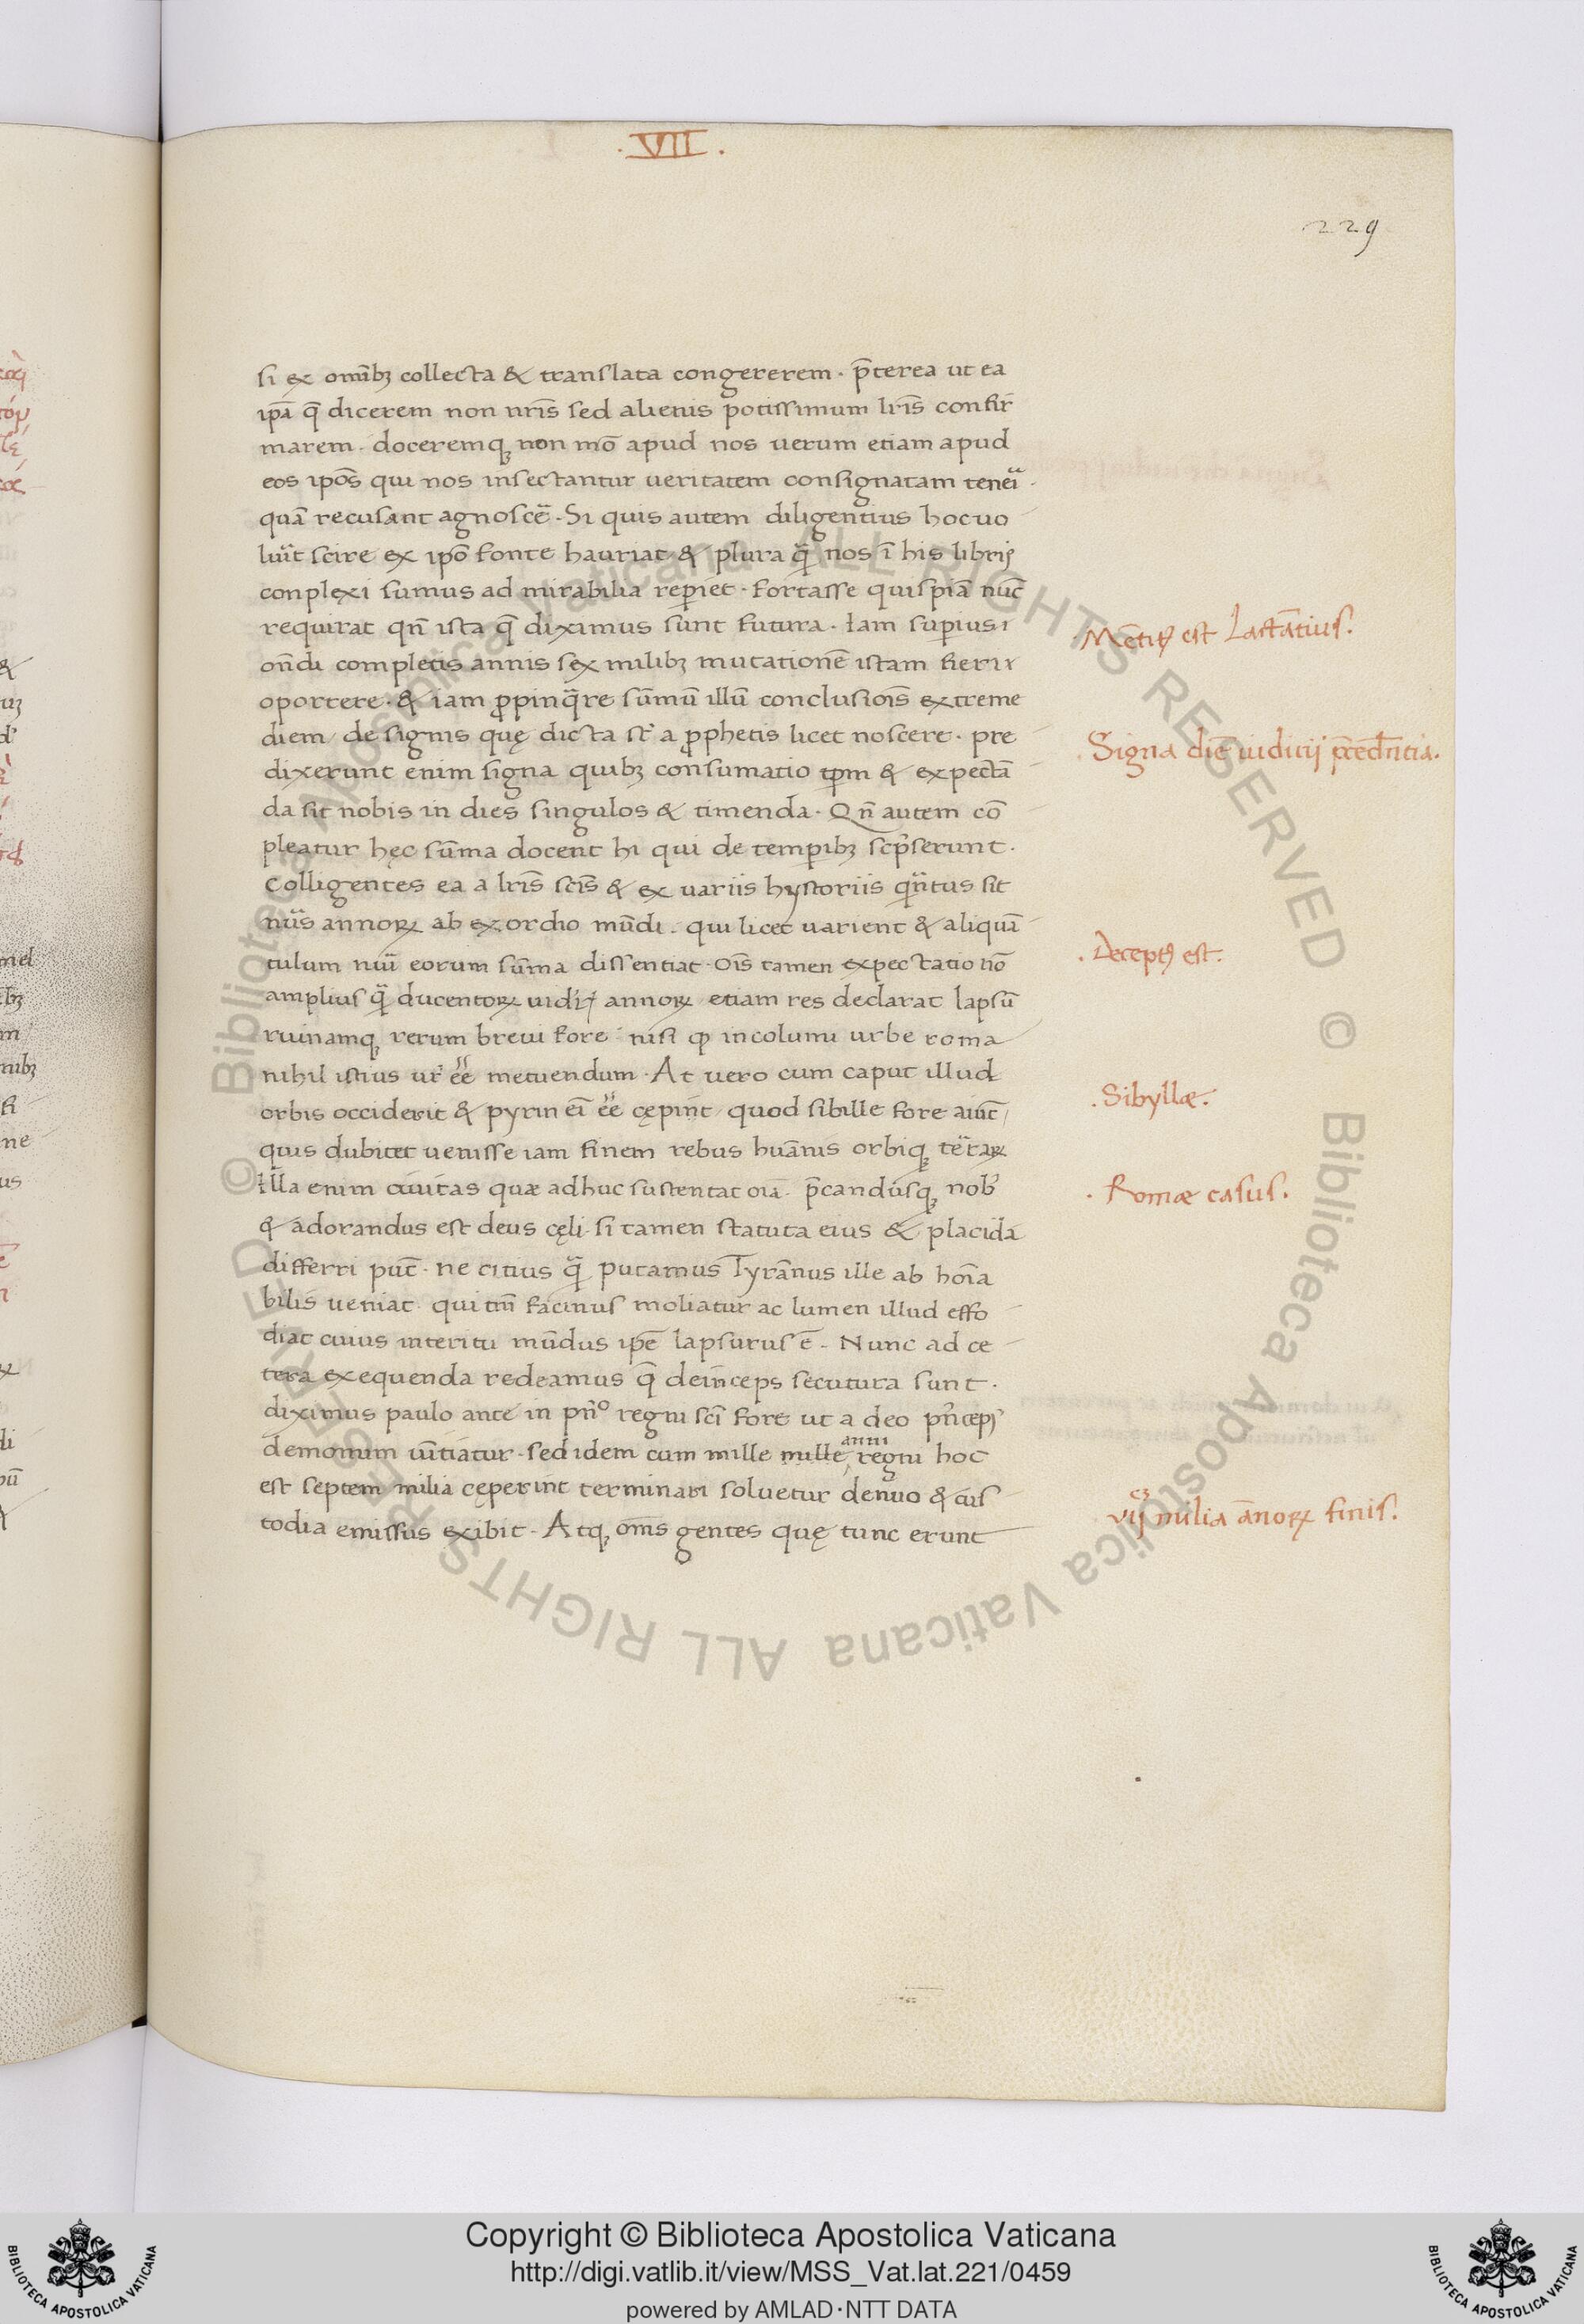 .VII.
229
si ex omĩbꝫ collecta & translata congererem. p̄terea ut ea
ip̄a q̄ dicerem non nr̄is sed alienis potissimum lr̄is confir
marem. doceremqꝫ non mō apud nos uerum etiam apud
eos ip̄os qui nos insectantur ueritatem consignatam teneri
quā recusant agnoscē. Si quis autem diligentius hoc uo
luit scire ex ip̄o fonte hauriat & plura q̄ nos ī his libris
conplexi sumus ad mirabilia reperiet. fortasse quispiā nūc
requirat qn̄ ista q̄ diximus sunt futura. Iam superius
on̄di completis annis sex milibꝫ mutationē istam fieri
oportere. & iam ꝓpinq̄re sūmū illū conclusiōis extreme
diem de signis quę dicta st̄ a ꝓphetis licet noscere. pre
dixerunt enim signa quibꝫ consumatio tp̄m & expectā
da sit nobis in dies singulos & timenda. Qn̄ autem cō
pleatur hęc sūma docent hi qui de temporibꝫ scp̄serunt.
Colligentes ea a lr̄is sc̄is & ex uariis hystoriis q̄ntus sit
nūs annoꝝ ab exordio mūdi. qui licet uarient & aliquā
tulum nūi eorum sūma dissentiat. Ois tamen expectatio nō
amplius q̄ ducentoꝝ uidr̄ annoꝝ etiam res declarat lapsū
ruinamqꝫ rerum breui fore nisi ꝙ incolumi urbe roma
nihil istius ur̄ eē metuendum. At uero cum caput illud
orbis occiderit & pyrin eī eē cępint quod sibille fore aiūt
quis dubitet uenisse iam finem rebus huānis orbiqꝫ teraꝝ
Illa enim ciuitas quæ adhuc sustentat oīa. p̄candusqꝫ nob̄
& adorandus est deus cęli. si tamen statuta eius & placida
differri put̄. ne citius q̄ putamus Tyrānus ille ab homīa
bilis ueniat. qui tm̄ facinus moliatur ac lumen illud effo
diat cuius interitu mūdus ip̄e lapsurus ē. Nunc ad ce
tera exequenda redeamus q̄ deinceps secutura sunt.
diximus paulo ante in pn̄º regni sc̄i fore ut a deo pn̄ceps
demonum uīntiatur. sed idem cum mille mille anni regni hoc
est septem milia cęperint terminari soluetur denuo & cus
todia emissus exibit. Atqꝫ om̄s gentes quę tunc erunt
Mētitꝰ est Lactātius.
Signa diē iudicij p̄cedn̄tia.
Deceptꝰ est.
Sibyllæ.
Romæ casus.
vij milia ānoꝝ finis.
Copyright © Biblioteca Apostolica Vaticana
http://digi.vatlib.it/view/MSS_Vat.lat.221/0459
powered by AMLAD·NTT DATA
BIBLIOTECA APOSTOLICA VATICANA
BIBLIOTECA APOSTOLICA VATICANA
© Biblioteca Apostolica Vaticana ALL RIGHTS RESERVED © Biblioteca Apostolica Vaticana ALL RIGHTS RESERVED